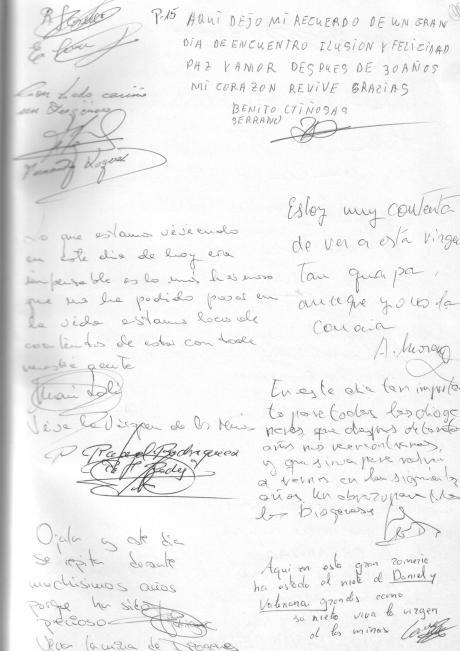 P-15
AQUI DEJO MI RECUERDO DE UN GRAN
DIA DE ENCUENTRO ILUSION Y FELICIDAD
PAZ Y AMOR DESPUES DE 30 AÑOS
MI CORAZON REVIVE GRACIAS
BENITO
SERRANO
Con todo cariño
Lo que estamos viviendo
en este dia de hoy era
impensable es lo mas hermoso
que nos ha podido pasar en
la vida estamos locos de
contentos de estar con toda
nuestra gente
Mari Loli
Viva la Virgen de las Minas
Rafael Rodriguez
Estoy muy contenta
de ver a esta virgen
tan guapa,
aunque yo no la
conocia
A. Moreno
En este dia tan importan
te para todos los dioge
neros que despues de tantos
años nos reencontramos,
y que sirva para volver
a vernos en los siguientes
años. Un abrazo para
los Diogenes
Ojala y este dia
se repita durante
muchisimos años
porque ha sido
precioso
Viva la mina de Diogenes
Aqui en esta gran romeria
ha estado el nieto de Daniel y
Valeriana grandes como
su nieto viva la virgen
de las minas